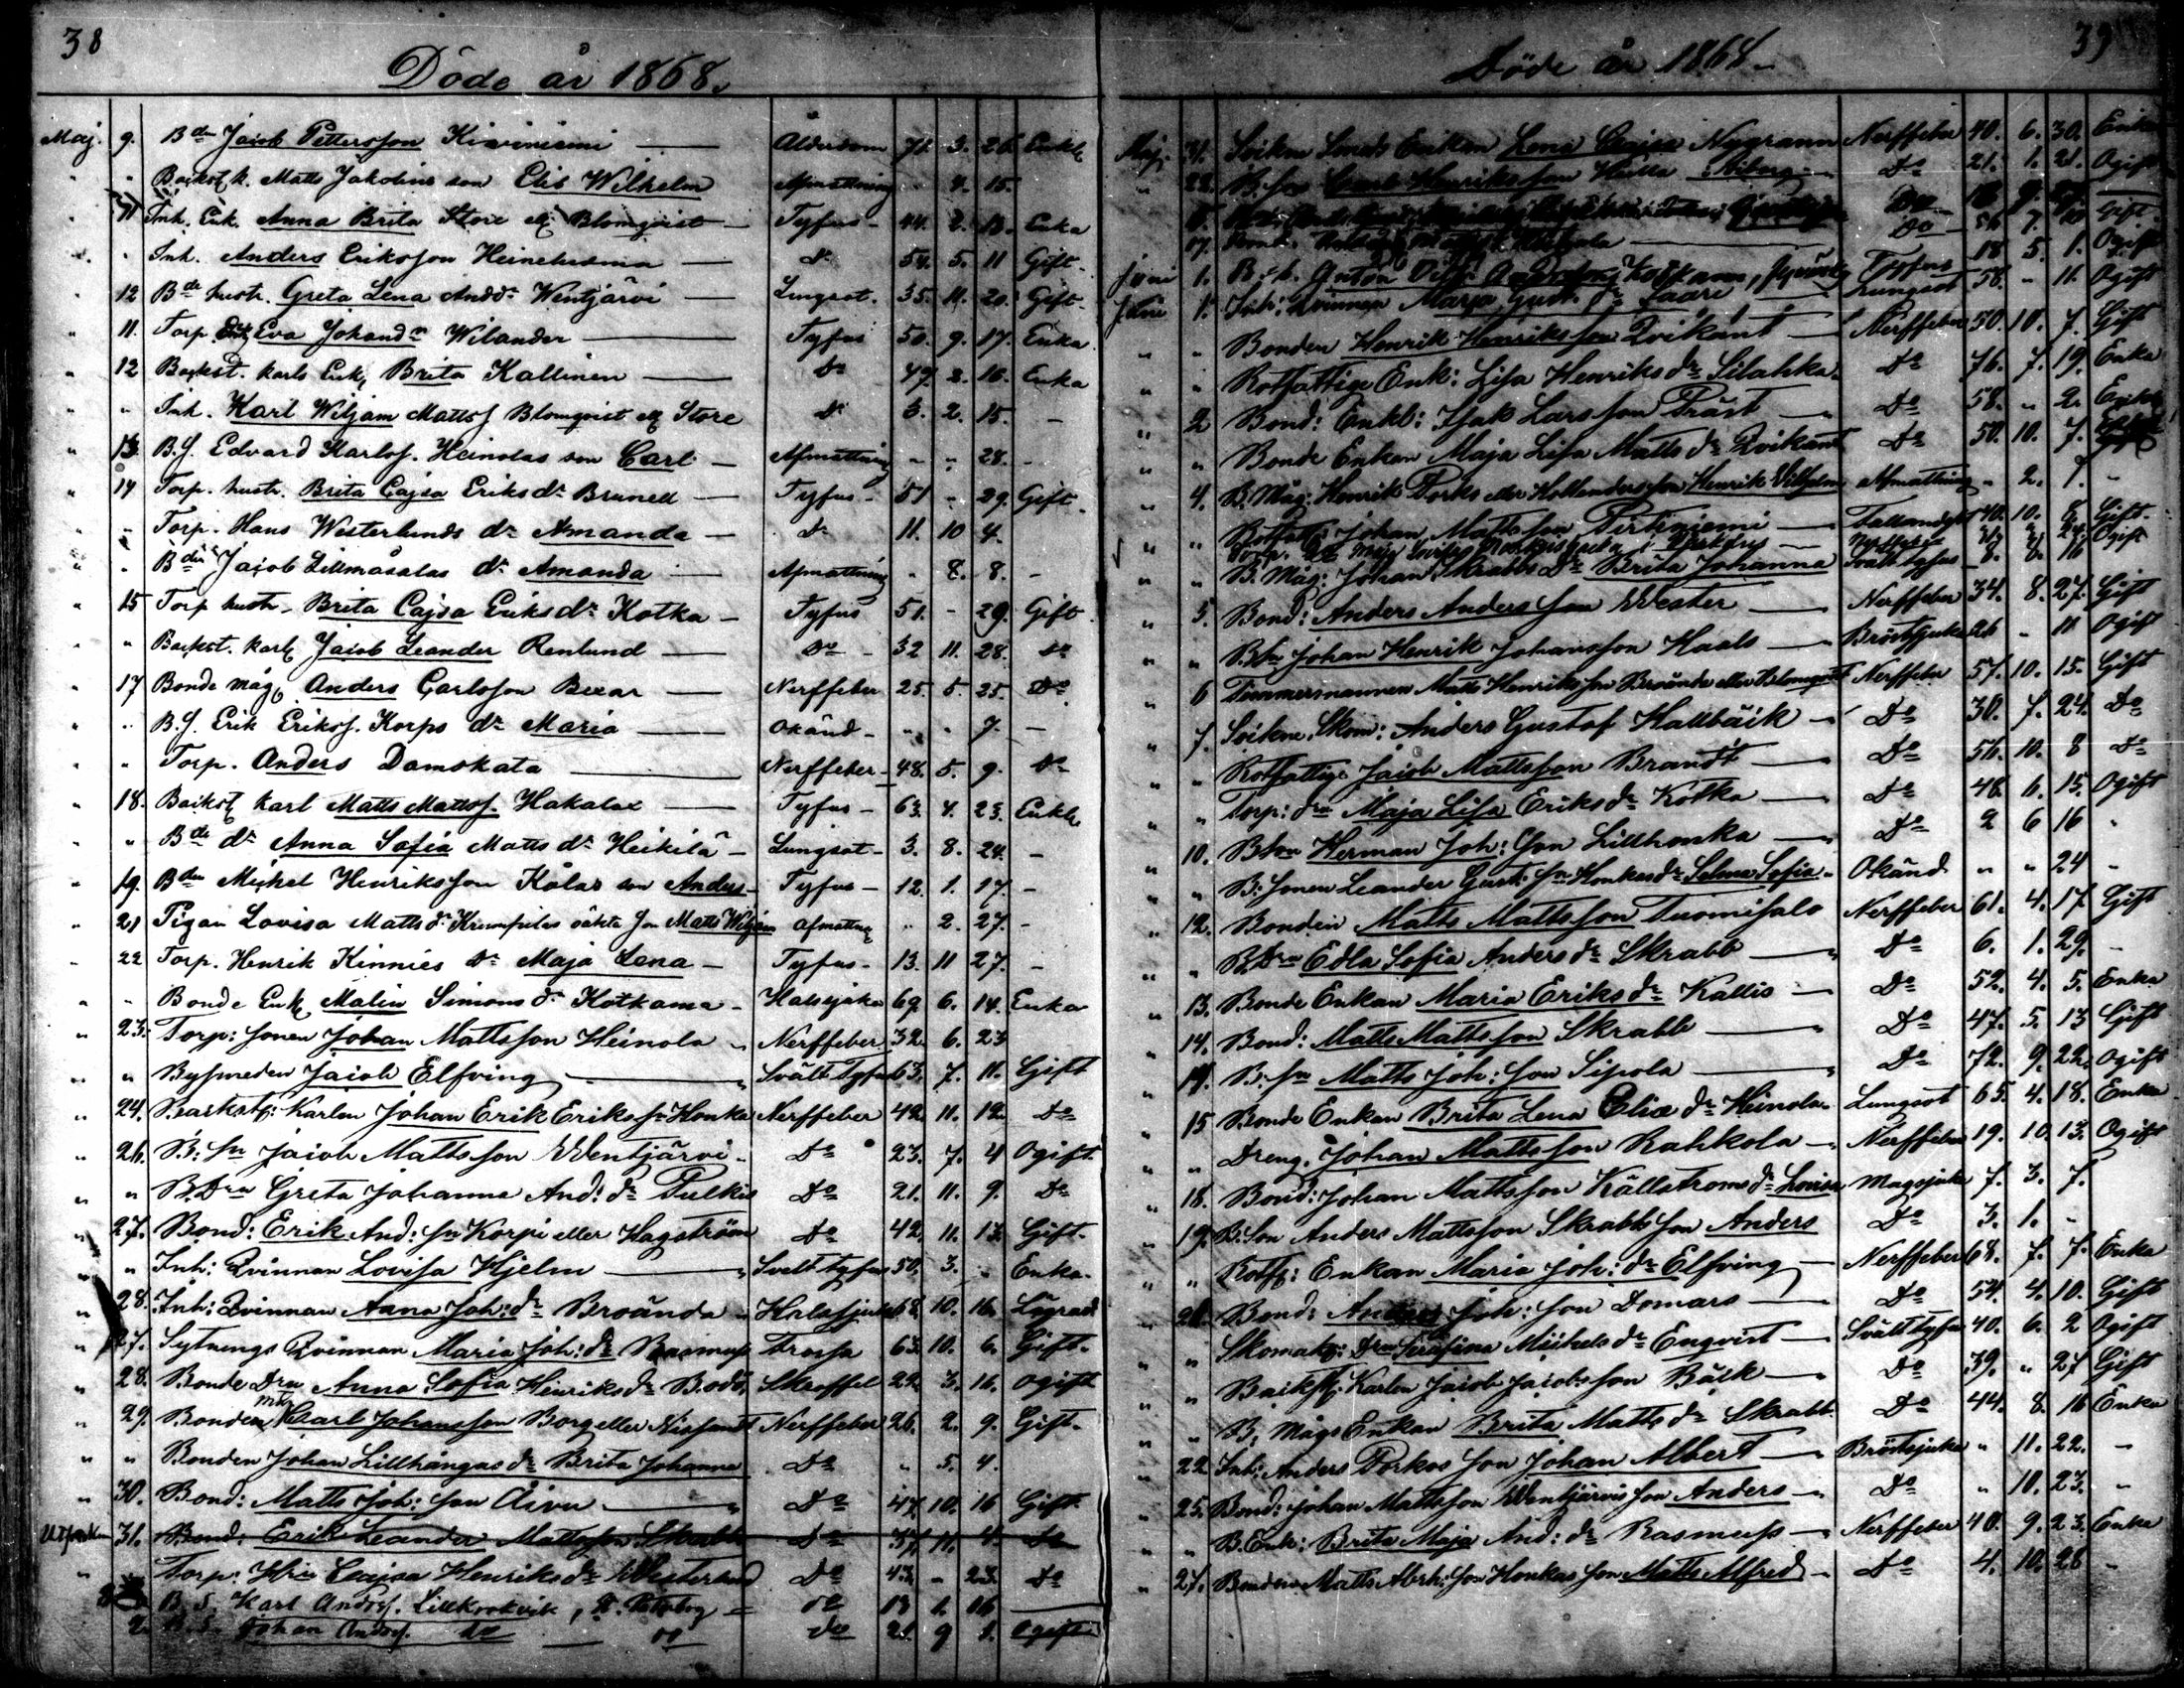 38
Döde år 1868.
Maj. 9. Bdn Jacob Pettersson Kiviniemi Ålderdom 71. 3. 26. Enkl
" " Backst k. Matts Jakolins son Elis Wilhelm Afmattning " 4. 15.
" 11 Inh. Enk. Anna Brita Store ell Blomqvist Tyfus 44. 2. 13. Enka
" " Inh. Anders Eriksson Heinehesma Do 54. 5. 11 Gift.
" 12 Bde hustr. Greta Lena Anddr Wentjärvi Lungsot. 35. 11. 20. Gift.
" 11. Torp Enk Eva Johandr Wilander Tyfus 50. 9. 17. Enka
" 12 Backst. karls Enk, Brita Kallinen Do 47. 2. 16. Enka
" " Inh. Karl Wiljam Mattsf Blomqvist ell Store Do 3. 2. 15. -
" 13. B.S. Edvard Karlsf. Heinolas son Carl Afmattning - " 28. -
" 14 Torp. hustr. Brita Cajsa Eriksdr Bruned Tyfus 51 - 29. Gift.
" " Torp. Hans Westerlunds dr Amanda Do 11. 10 4.
" " Bdn Jacob Lillmåsalas dr Amanda Afmattning " 8. 8. -
" 15 Torp hustr. Brita Cajsa Eriksdr Kotka Tyfus 51. - 29. Gift
" " Backst. karl Jacob Leander Renlund Do 32 11. 28. Do
" 17 Bonde måg, Anders Carlsson Bexar Nerffeber 25. 5. 25. Do
" " B.S. Erik Eriksf. Korps dr Maria Okänd " " 7. -
" " Torp. Anders Damskata Nerffeber 48. 5. 9. Do
" 18. Backst karl Matts Mattsf. Hakalax Tyfus 63. 4. 23. Enkl
" " Bde dr Anna Sofia Matts dr Heikilä Lungsot 3. 8. 24. -
" 19. Bdn Michel Henriksson Kålas son Anders Tyfus 12. 1. 17. -
" 21 Pigan Lovisa Matts dr Krumpulas oäkta son Matts Wiljam Afmattng " 2. 27. -
" 22 Torp. Henrik Kinnies dr Maja Lena Tyfus 13. 11 27. -
" " Bonde Enk Malin Simons dr Kotkama Halssjuka 69. 6. 14. Enka
" 23. Torp: sonen Johan Mattsson Heinola Nerffeber 32. 6. 23
" " Bysmeden Jacob Elfving Svält Tyfus 63. 7. 11. Gift
" 24. Backst: Karlen Johan Erik Eriks sn Honka Nerffeber 42. 11. 12. Do
" 26. B: sn Jacob Mattsson Wentjärvi Do 23. 7. 4 Ogift
" " B. Dra Greta Johanna And: dr Pulkis Do 21. 11. 9. Do
" 27. Bond: Erik And: sn Korpi eller Hagström Do 42. 11. 13. Gift.
" " Inh: Qvinnan Lovisa Hjelm Svält tyfus 50. 3. " Enka.
" 28. Inh: Qvinnan Anna Joh: dr Broända Halssjuka 10. 16.
" 27. Sytnings Qvinnan Maria Joh: dr Rasmus Frossa 63. 10. 6. Gift.
" 28. Bonde Dra Anna Sofia Henriks dr Bods, Skroffel 22. 3. 16. Ogift
" 29. Bonden måg Carl Johansson Borg eller Nissfant Nerffeber 26. 2. 9. Gift.
" " Bonden Johan Lillhångas dr Brita Johanna Do " 5. 4.
" 30. Bond: Matts Joh: son Aivu Do 47. 10. 16 Gift
31. Bond: Erik Leander Mattsson Skrabb Do 37. 11. 4. Do
" Torp: Hru Cajsa Henriks dr Westerlund Do 43. - 23. Do
B. S. Karl Andrsf. Lillkrokvik, Do 13 1. 16
2. B. S. Johan Andrsf. Do Do Do 21. 9 1. Ogift
39
Döde år 1868.
Maj. 31. Soikne Smeds Enkan Lena Cajsa Nygrann Nerffeber 40. 6. 30. Enka
22. B. son Carl Henriksson Do 21. 1. 21. Ogift
17. Do 56. 7. Gift
Juni 1. B. k. Anton Kotkam, Tyfus 18 5. 1. Ogift
Juni 1. Inh: Qvinnan Maja Gust. dr Saari Lungsot 58. - 11. Ogift
" " Bonden Henrik Henriksson Qvikant Nerffeber 50. 10. 7. Gift
" " Rotfattige Enk: Lisa Henriks dr Silahka Do 76. 7. 19. Enka
" 2 Bond: Enkl: Isak Larsson Präst Do 58. " 2. Enkl
" " Bonde Enkan Maja Lisa Matts dr Qvikant Do 50. 10. 7.
" 4. B. Måg: Henrik Porkes eller Hollanders son Henrik Vilhelm Afmattning " 2. 1. -
" " Rotfatt: Johan Mattsson Pertiniemi Fallandesot 40. 10. 8. Gift.
" " B. Måg: Johan Skrabbs Dr Brita Johanna Svält tyfus 8. 8. 16
" 5. Bond: Anders Andersson Wester Nerffeber 34. 8. 27. Gift
" " B. sn Johan Henrik Johansson Haals Bröstsjuka 26 " 11 Ogift
" 6 Timmermannen Matts Henriksson Broända eller Blomqvist Nerffeber 57. 10. 15. Gift
" 7. Soikne. Skom: Anders Gustaf Hallbäck Do 30. 7. 24. Do
" " Rotfattige Jacob Mattsson Brandt Do 56. 10. 8 Do
" " Torp: dra Maja Lisa Eriks dr Kotka Do 48. 6. 15. Ogift
" 10. B. son Herman Joh: son Lillhonka Do 2 6 16 "
" " B: sonen Leander Gust: sn Honkas dr Selma Sofia Okänd " " 24 -
" 12. Bonden Matts Mattsson Tuomisalo Nerffeber 61. 4. 17 Gift
" " B. Dra Edla Sofia Anders dr Skrabb Do 6. 1. 29. -
" 13. Bonde Enkan Maria Eriks dr Kallis Do 52. 4. 5. Enka
" 14. Bond: Matts Mattsson Skrabb Do 47. 5. 13 Gift
" 14. B. sn Matts Joh: son Sipola Do 72. 9. 22. Ogift
" 15 Bonde Enkan Brita Lena Eliæ dr Heinola Lungsot 65. 4. 18. Enka
" " Dreng. Johan Mattsson Rahkola Nerffeber 19. 10. 13. Ogift
" 18. Bond: Johan Mattsson Källströms dr Lovisa Magsjuka 7. 3. 7.
" 19. B: son Anders Mattsson Skrabbs son Anders Do 3. 1. -
" " Rotf: Enkan Maria Joh: dr Elfving Nerffeber 68. 7. 7. Enka
" Bond: Anders Joh: son Domars Do 54. 4. 10. Gift
" " Skomak: Dra Serafina Michels dr Enqvist Svält tyfus 40. 6. 2 Ogift
" " Backst: Karlen Jacob Jacobsson Bäck Do 39. " 27 Gift
" " B. Mågs Enkan Brita Matts dr Skrabb Do 44. 8. 16 Enka
" 22 Inh: Anders Porkos son Johan Albert Bröstsjuka " 11. 22. -
" 25. Bond: Johan Mattsson Wentjärvis son Anders Do " 10. 23. "
" " B. Enk: Brita Maja And: dr Rasmus Nerffeber 40. 9. 23. Enka
" 27. Bonden Matts Abrh: son Honkas son Matts Alfred Do 4. 10. 28 -